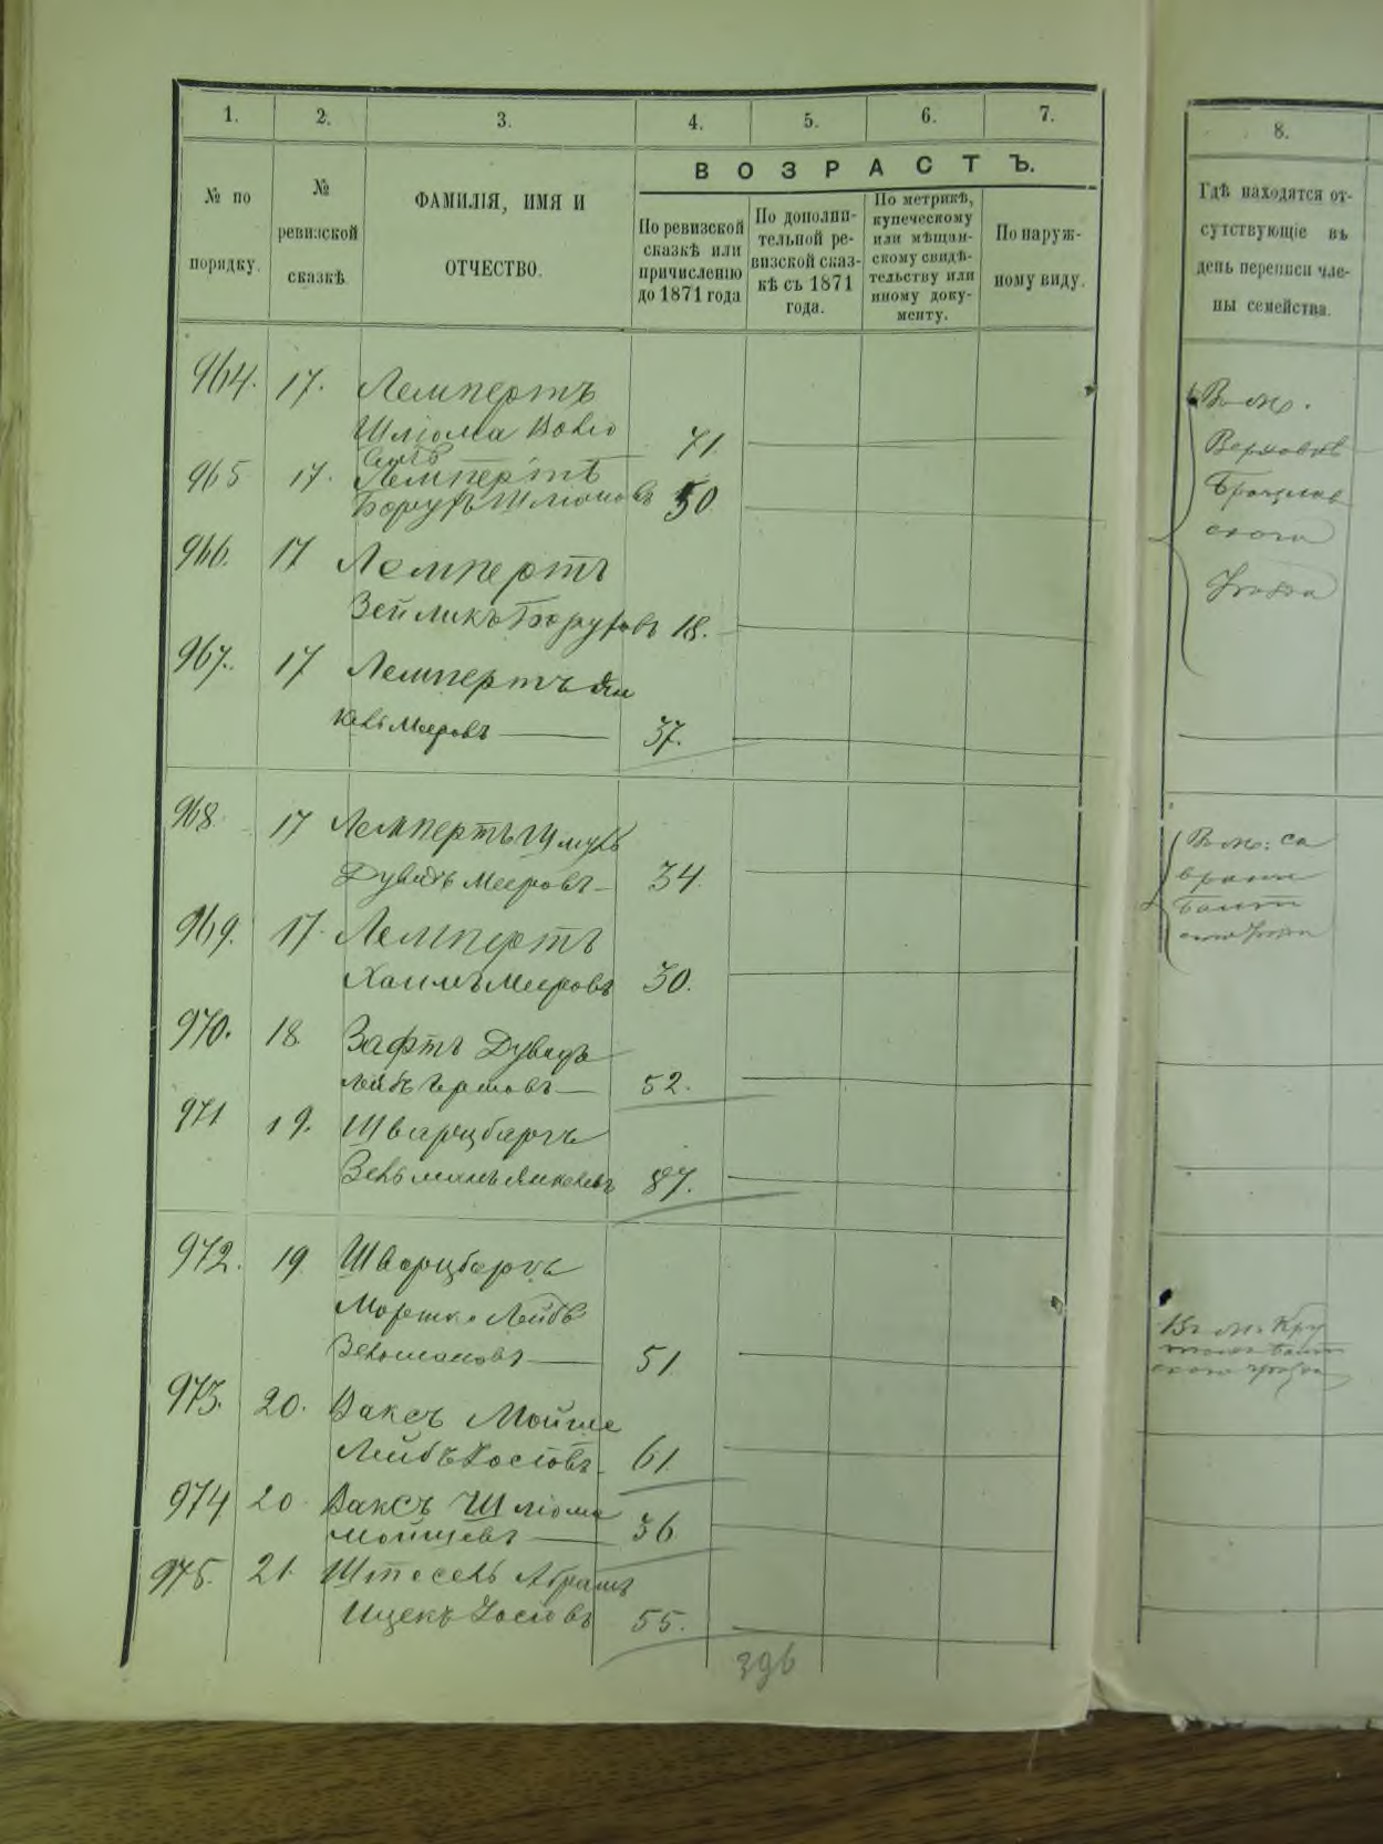 1. 2. 3. 4. 5. 6. 7. 8.
ВОЗРАСТЪ.
№ по порядку.
№ ревизской сказкѣ
ФАМИЛІЯ, ИМЯ И ОТЧЕСТВО.
По ревизской сказкѣ или причисленію до 1871 года
По дополнительной ревизской сказкѣ съ 1871 года.
По метрикѣ, купеческому или мѣщанскому свидѣтельству или иному документу.
По наружному виду.
Гдѣ находятся отсутствующіе въ день переписи члены семейства.
964. 17. Лемпертъ
Шліома Вольо 71.
965 17. Лемпертъ
Борухъ Шліомовъ 50
966. 17 Лемпертъ
Зейликъ Боруховъ 18.
967. 17 Лемпертъ Ян
кель Мееровъ 37.
968. 17 Лемпертъ Шмуль
Дувидъ Мееровъ 34.
969. 17. Лемпертъ
Хаимъ Мееровъ 30.
970. 18. Зафтъ Дувидъ
Лейбъ Гершовъ 52.
971 19. Шварцбаргъ
Зельманъ Янкелевъ 87.
972. 19. Шварцбаргъ
Мортко Лейбъ
Зельмановъ 51.
973. 20. Ваксъ Мойше
Лейбъ Хосіовъ 61.
974 20. Ваксъ Шліома
Мойшевъ 36
975. 21. Штесель Абрамъ
Ицекъ Іосіовъ 55.
396
В м.
Верховкѣ
Брацлав
скаго
Уѣзда
В м. Са
врани
Балт
Уѣзда
В м. Кру
тыхъ Балт
скаго уѣзда